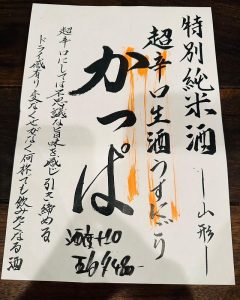 特別純米酒
―山形―
超辛口生酒うすにごり
かっぱ
酒度+10
¥480-
超辛口にしては不思議な旨味を感じ引き締める
ドライ感有り変なくせがなく何杯でも飲みたくなる酒